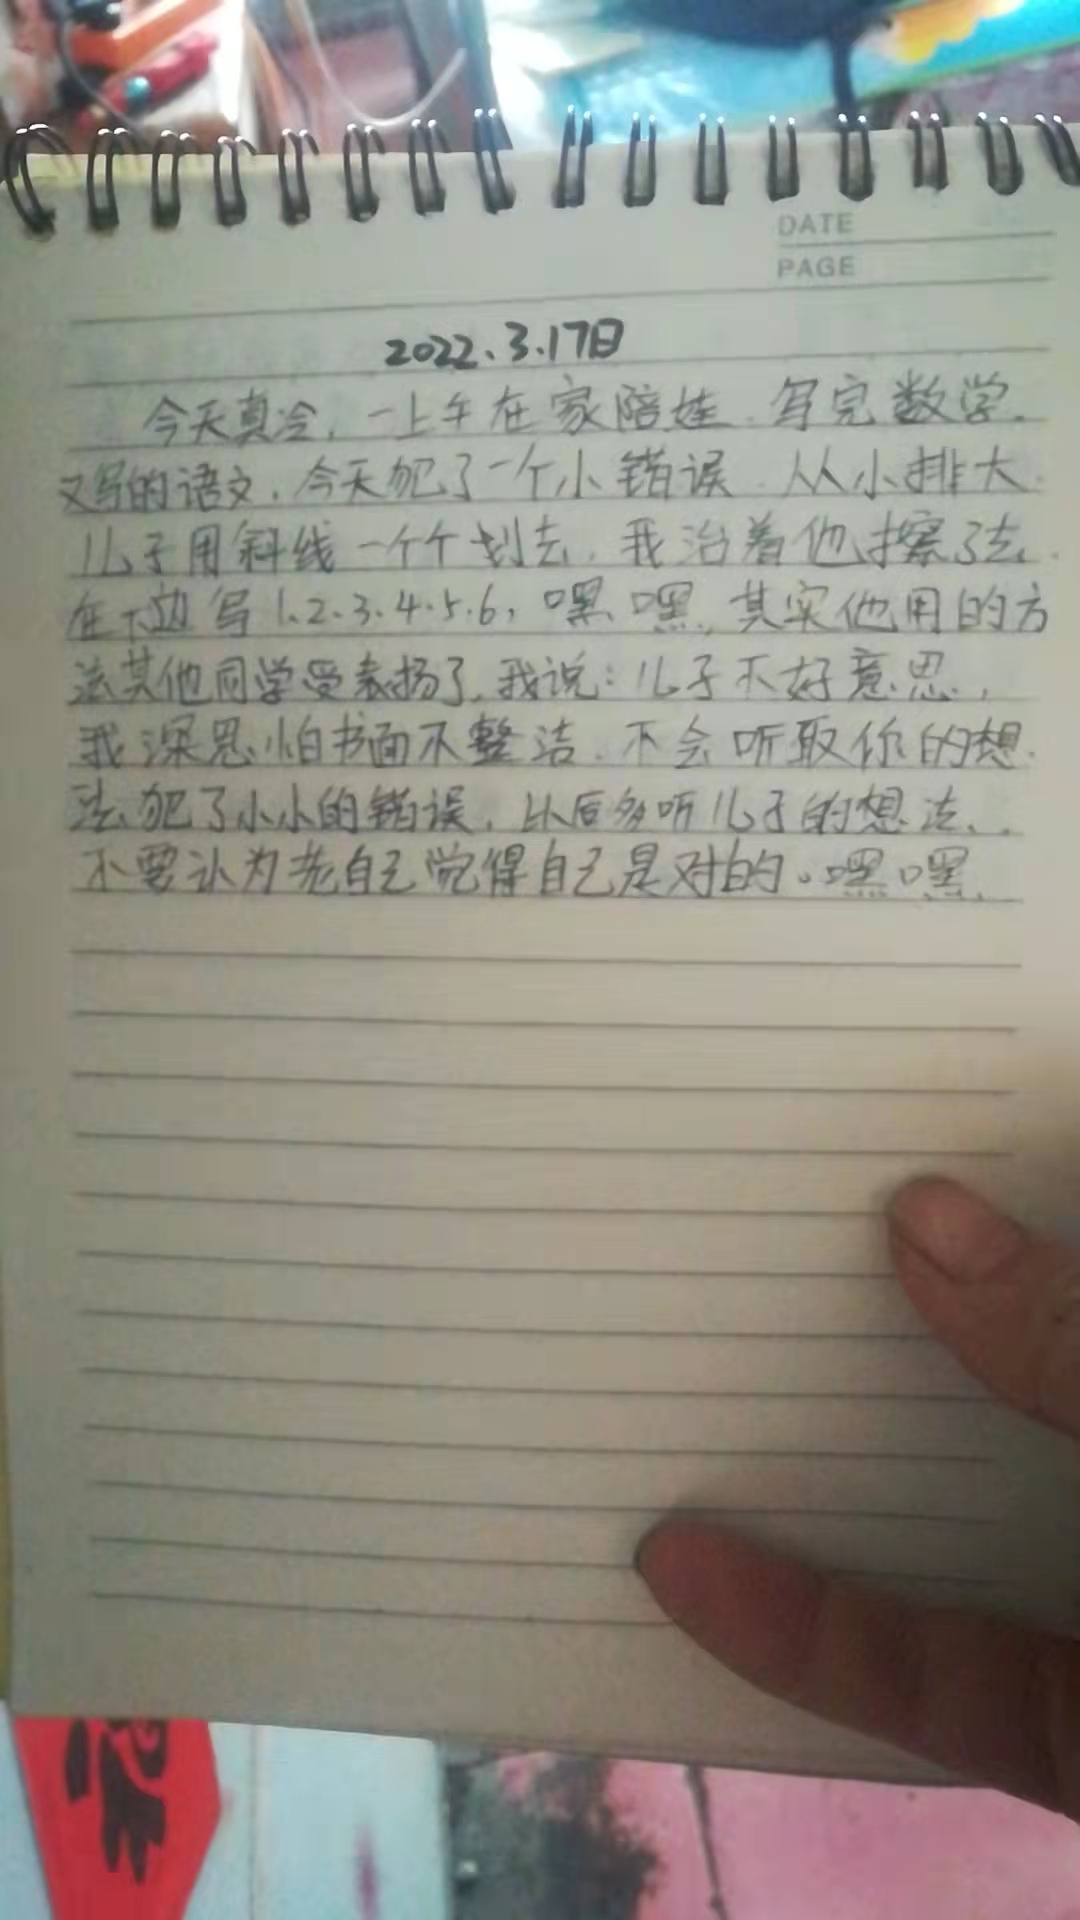 DATE
PAGE
2022.3.17日
今天真冷,一上午在家陪娃.写完数学.
又写的语文.今天犯了一个小错误.从小排大.
儿子用斜线一个个划去.我治着他擦了去.
在下边写1.2.3.4.5.6,嘿嘿,其实他用的方
法其他同学受表扬了.我说:儿子不好意思,
我深思怕书面不整洁.不会听取你的想.
法.犯了小小的错误.以后多听儿子的想法..
不要认为老自己觉得自己是对的。嘿嘿.